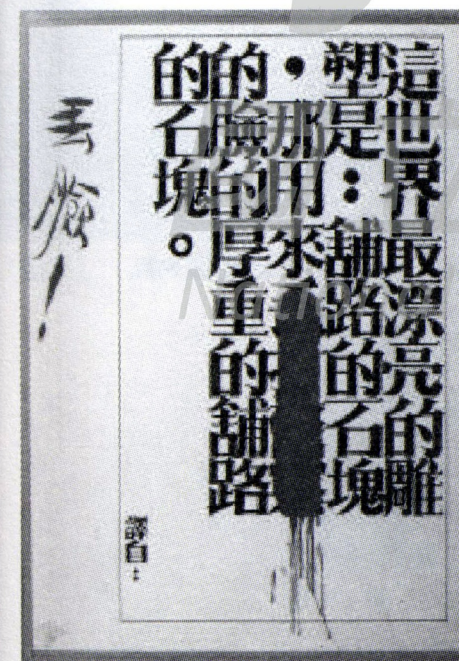 這世界最漂亮的雕
塑是：舖路的石塊
，那用來
的臉的厚重的舖路
的石塊。
譯自：
丟臉！